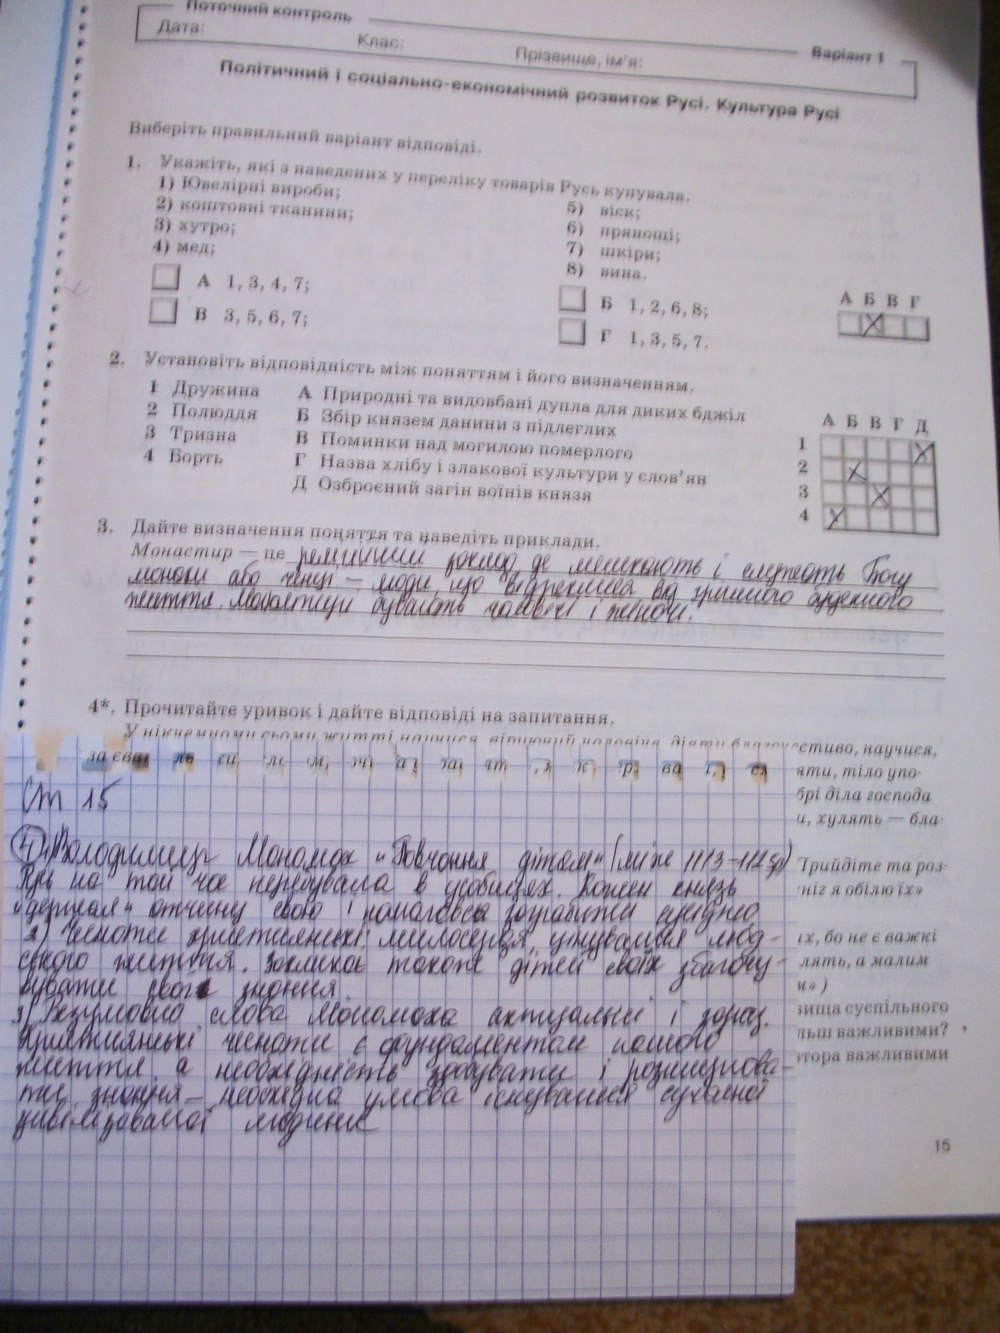 Поточний контроль
Дата: Клас: Прізвище, ім'я: Варіант 1
Політичний і соціально-економічний розвиток Русі. Культура Русі
Виберіть правильний варіант відповіді.
1. Укажіть, які з наведених у переліку товарів Русь купувала.
1) Ювелірні вироби;
2) коштовні тканини;
3) хутро;
4) мед;
5) віск;
6) прянощі;
7) шкіри;
8) вина.
А 1, 3, 4, 7;
Б 1, 2, 6, 8;
В 3, 5, 6, 7;
Г 1, 3, 5, 7.
А Б В Г
2. Установіть відповідність між поняттям і його визначенням.
1 Дружина
2 Полюддя
3 Тризна
4 Борть
А Природні та видовбані дупла для диких бджіл
Б Збір князем данини з підлеглих
В Поминки над могилою померлого
Г Назва хлібу і злакової культури у слов'ян
Д Озброєний загін воїнів князя
А Б В Г Д
1
2
3
4
3. Дайте визначення поняття та наведіть приклади.
Монастир — це релігійний заклад де мешкають і служать Богу
монахи або ченці – люди, що відреклися від грішного буденного
життя. Монастирі бувають чоловічі і жіночі.
4*. Прочитайте уривок і дайте відповіді на запитання.
У нікчемному сьому житті научися, віруючий чоловіче, діяти благочестиво, научися,
яти, тіло упо-
брі діла господа
и, хулять — бла-
Прийдіте та роз-
ніг я обілю їх»
их, бо не є важкі
лять, а малим
и»)
вища суспільного
льш важливими?
втора важливими
15
Ст 15
4) 1) Володимир Мономах "Повчання дітям" (між 1113-1125р)
Русь на той час перебувала в усобицях. Кожен князь
"держал" отчину свою і намагався пограбити сусідню
2) Чесноти християнські: милосердя, цінування люд-
ського життя. Закликає також дітей своїх збагачу-
вувати свої знання.
3) Безумовно слова Мономаха актуальні і зараз.
Християнські чесноти є фундаментом нашого
життя, а необхідність здобувати і розширюва-
ти знання – необхідна умова існування сучасної
цивілізованої людини